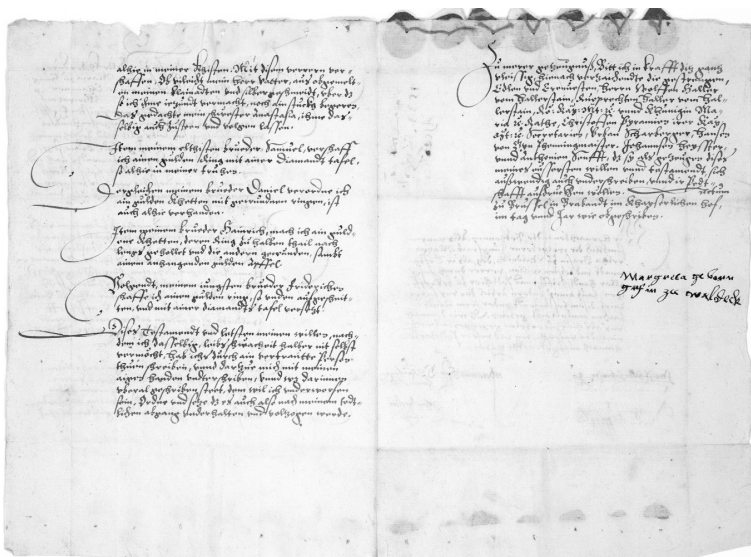 alhie in meiner Khisten. Mit disem verrern ver-
schaffen, Ob vileicht mein herr Vatter, aus obgemelt-
en meinen Klainaten und silbergeschmeidt, über dz
so ich ime ietzundt vermacht, noch ain stuckh begeren,
das gedachte mein schwester Anastasia, ihme das-
selbig auch zusten und volgen lassen.
Item meinem eltisten brueder Samuel, verschaff
ich ainen gulden Ring mit ainer Diamandt tafel,
ist alhie in meiner truhen.
Dergleichen meinem brueder Daniel verordne ich
ein gulden Khetten mit gewunden ringen, ist
auch alhie verhanden.
Item meinem brueder Hainrich, mach ich ain guld-
ene Khetten, deren Ring zu halben thail nach
lengs gehollet und die andern gewunden, sambt
ainen anhangenden gulden Apffel.
Volgendt, meinem iungsten brueder Friderichen
schaffe ich ainen gulden ring, ist unden aufgeschnit-
ten, und mit ainer diamandt tafel versetzt.
Dises Testamendt und letsten meinen willen, nach-
dem ich dasselbig, leibs schwacheit halber nit selbst
vermocht, hab ichs durch ain vertrautte Person
thuen schreiben, unnd darzue mich mit meinen
aigen handen underschriben, unnd wz darinnen
überal geschriben steet, dem wil ich underworffen
sein. Ordne und setze dz es auch also nach meinem todt-
lichen abgang underhalten und volzogen werde.
Zu merer gezeugnuß, Bitt ich in krafft diz ganz
vleissig, hienach verzaichendte die gestrengen,
Edlen und Ernvesten, Herrn Wolffen Haller
vom Hallerstain, Ruprechten Haller vom Hal-
lerstain, Rö: Kay: Mt: &c und Khünigin Ma-
ria &c Rathe, Christoffen Pyramium der Kay:
Mt: &c Secretarien, Urban Scharberger, Hansen
von Phenningmaister, Johannsen
unnd Anthonien Senfft, dz sy als gezeugen dises
meines eussersten willen unnd testamendt sich
auswendig auch underschreiben, unnd ir Pedt-
schafft auftruckhen wöllen. Actum
zu Brüssel in Brabandt im Khayserlichen hof,
im tag unnd Jar wie obgeschriben.
Margreta ge boren
grefin zu Waldeck